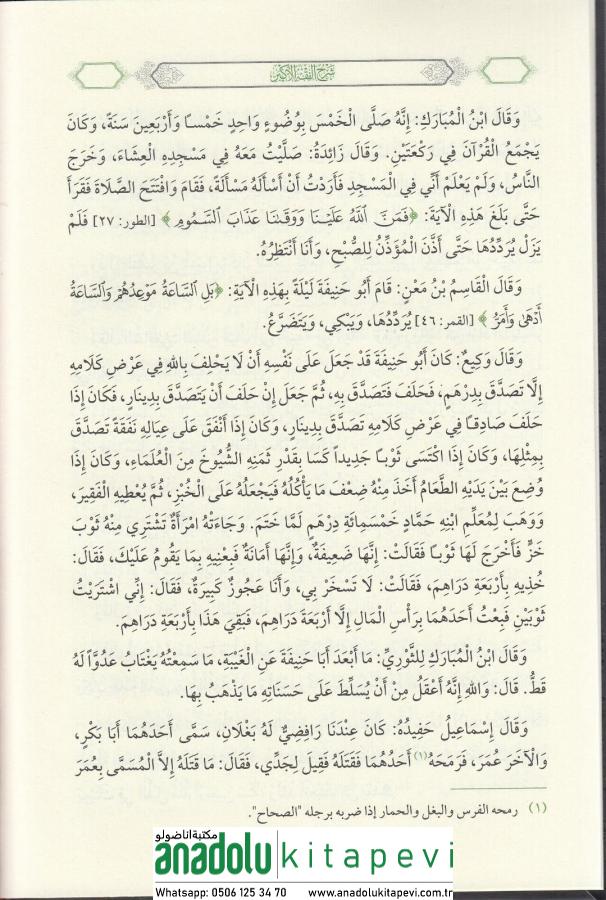 شرح الفقه الأكبر
وَقَالَ ابْنُ الْمُبَارَكِ: إِنَّهُ صَلَّى الْخَمْسَ بِوُضُوءٍ وَاحِدٍ خَمْساً وَأَرْبَعِينَ سَنَةً، وَكَانَ
يَجْمَعُ الْقُرْآنَ فِي رَكْعَتَيْنِ. وَقَالَ زَائِدَةُ: صَلَّيْتُ مَعَهُ فِي مَسْجِدِهِ الْعِشَاءَ، وَخَرَجَ
النَّاسُ، وَلَمْ يَعْلَمْ أَنِّي فِي الْمَسْجِدِ فَأَرَدْتُ أَنْ أَسْأَلَهُ مَسْأَلَةً، فَقَامَ وَافْتَتَحَ الصَّلَاةَ فَقَرَأَ
حَتَّى بَلَغَ هَذِهِ الْآيَةَ: ﴿فَمَنَّ اللَّهُ عَلَيْنَا وَوَقَىٰنَا عَذَابَ السَّمُومِ﴾ [الطور: ٢٧] فَلَمْ
يَزَلْ يُرَدِّدُهَا حَتَّى أَذَّنَ الْمُؤَذِّنُ لِلصُّبْحِ، وَأَنَا أَنْتَظِرُهُ.
وَقَالَ الْقَاسِمُ بْنُ مَعْنٍ: قَامَ أَبُو حَنِيفَةَ لَيْلَةً بِهَذِهِ الْآيَةِ: ﴿بَلِ ٱلسَّاعَةُ مَوْعِدُهُمْ وَٱلسَّاعَةُ
أَدْهَىٰ وَأَمَرُّ﴾ [القمر: ٤٦] يُرَدِّدُهَا، وَيَبْكِي، وَيَتَضَرَّعُ.
وَقَالَ وَكِيعٌ: كَانَ أَبُو حَنِيفَةَ قَدْ جَعَلَ عَلَى نَفْسِهِ أَنْ لَا يَحْلِفَ بِاللهِ فِي عَرْضِ كَلَامِهِ
إِلَّا تَصَدَّقَ بِدِرْهَمٍ، فَحَلَفَ فَتَصَدَّقَ بِهِ، ثُمَّ جَعَلَ إِنْ حَلَفَ أَنْ يَتَصَدَّقَ بِدِينَارٍ، فَكَانَ إِذَا
حَلَفَ صَادِقاً فِي عَرْضِ كَلَامِهِ تَصَدَّقَ بِدِينَارٍ، وَكَانَ إِذَا أَنْفَقَ عَلَى عِيَالِهِ نَفَقَةً تَصَدَّقَ
بِمِثْلِهَا، وَكَانَ إِذَا اكْتَسَى ثَوْباً جَدِيداً كَسَا بِقَدْرِ ثَمَنِهِ الشُّيُوخَ مِنَ الْعُلَمَاءِ، وَكَانَ إِذَا
وُضِعَ بَيْنَ يَدَيْهِ الطَّعَامُ أَخَذَ مِنْهُ ضِعْفَ مَا يَأْكُلُهُ فَيَجْعَلُهُ عَلَى الْخُبْزِ، ثُمَّ يُعْطِيهِ الْفَقِيرَ،
وَوَهَبَ لِمُعَلِّمِ ابْنِهِ حَمَّادٍ خَمْسَمِائَةِ دِرْهَمٍ لَمَّا خَتَمَ. وَجَاءَتْهُ امْرَأَةٌ تَشْتَرِي مِنْهُ ثَوْبَ
خَزٍّ فَأَخْرَجَ لَهَا ثَوْباً فَقَالَتْ: إِنَّهَا ضَعِيفَةٌ، وَإِنَّهَا أَمَانَةٌ فَبِعْنِيهِ بِمَا يَقُومُ عَلَيْكَ، فَقَالَ:
خُذِيهِ بِأَرْبَعَةِ دَرَاهِمَ، فَقَالَتْ: لَا تَسْخَرْ بِي، وَأَنَا عَجُوزٌ كَبِيرَةٌ، فَقَالَ: إِنِّي اشْتَرَيْتُ
ثَوْبَيْنِ فَبِعْتُ أَحَدَهُمَا بِرَأْسِ الْمَالِ إِلَّا أَرْبَعَةَ دَرَاهِمَ، فَبَقِيَ هَذَا بِأَرْبَعَةِ دَرَاهِمَ.
وَقَالَ ابْنُ الْمُبَارَكِ لِلثَّوْرِيِّ: مَا أَبْعَدَ أَبَا حَنِيفَةَ عَنِ الْغَيْبَةِ، مَا سَمِعْتُهُ يَغْتَابُ عَدُوّاً لَهُ
قَطُّ. قَالَ: وَاللهِ إِنَّهُ أَعْقَلُ مِنْ أَنْ يُسَلِّطَ عَلَى حَسَنَاتِهِ مَا يَذْهَبُ بِهَا.
وَقَالَ إِسْمَاعِيلُ حَفِيدُهُ: كَانَ عِنْدَنَا رَافِضِيٌّ لَهُ بَغْلَانِ، سَمَّى أَحَدَهُمَا أَبَا بَكْرٍ،
وَالْآخَرَ عُمَرَ، فَرَمَحَهُ(١) أَحَدُهُمَا فَقَتَلَهُ فَقِيلَ لِجَدِّي، فَقَالَ: مَا قَتَلَهُ إِلَّا الْمُسَمَّى بِعُمَرَ
(١) رمحه الفرس والبغل والحمار إذا ضربه برجله "الصحاح".
مكتبة اناضولو
anadolu kitapevi
Whatsapp: 0506 125 34 70 www.anadolukitapevi.com.tr